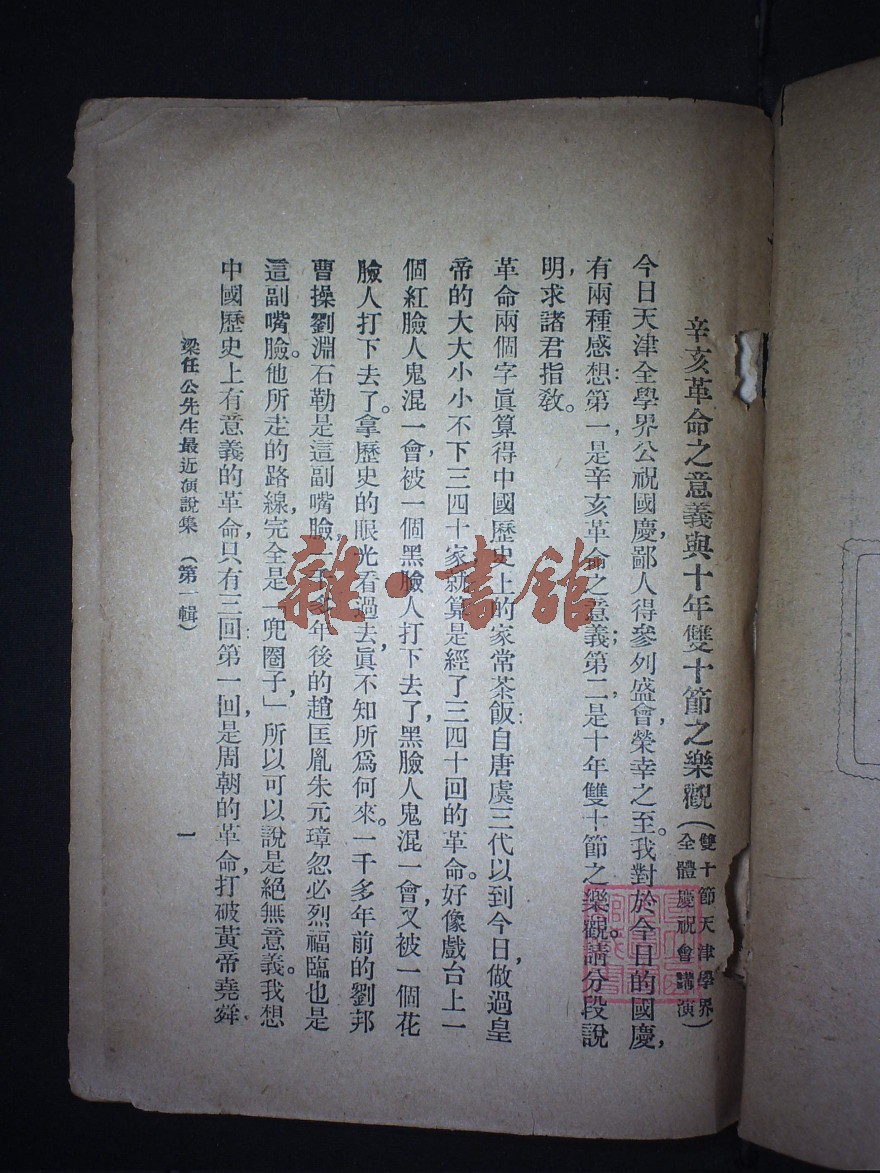 辛亥革命之意義與十年雙十節之樂觀（雙十節天津學界全體慶祝會講演）
今日天津全學界公祝國慶，鄙人得參列盛會，榮幸之至。我對於今日的國慶，
有兩種感想：第一，是辛亥革命之意義；第二，是十年雙十節之樂觀。請分段說
明，求諸君指教。
革命兩個字，眞算得中國歷史上的家常茶飯：自唐虞三代以到今日，做過皇
帝的大大小小不下三四十家，就算是經了三四十回的革命。好像戲台上一
個紅臉人鬼混一會，被一個黑臉人打下去了，黑臉人鬼混一會，又被一個花
臉人打下去了。拿歷史的眼光看過去，眞不知所爲何來。一千多年前的劉邦
曹操劉淵石勒是這副嘴臉，一千多年後的趙匡胤朱元璋忽必烈福臨也是
這副嘴臉。他所走的路線，完全是「兜圈子」，所以可以說是絕無意義。我想
中國歷史上有意義的革命，只有三回：第一回，是周朝的革命，打破黃帝堯舜
梁任公先生最近演說集（第一輯）
一
雜·書館